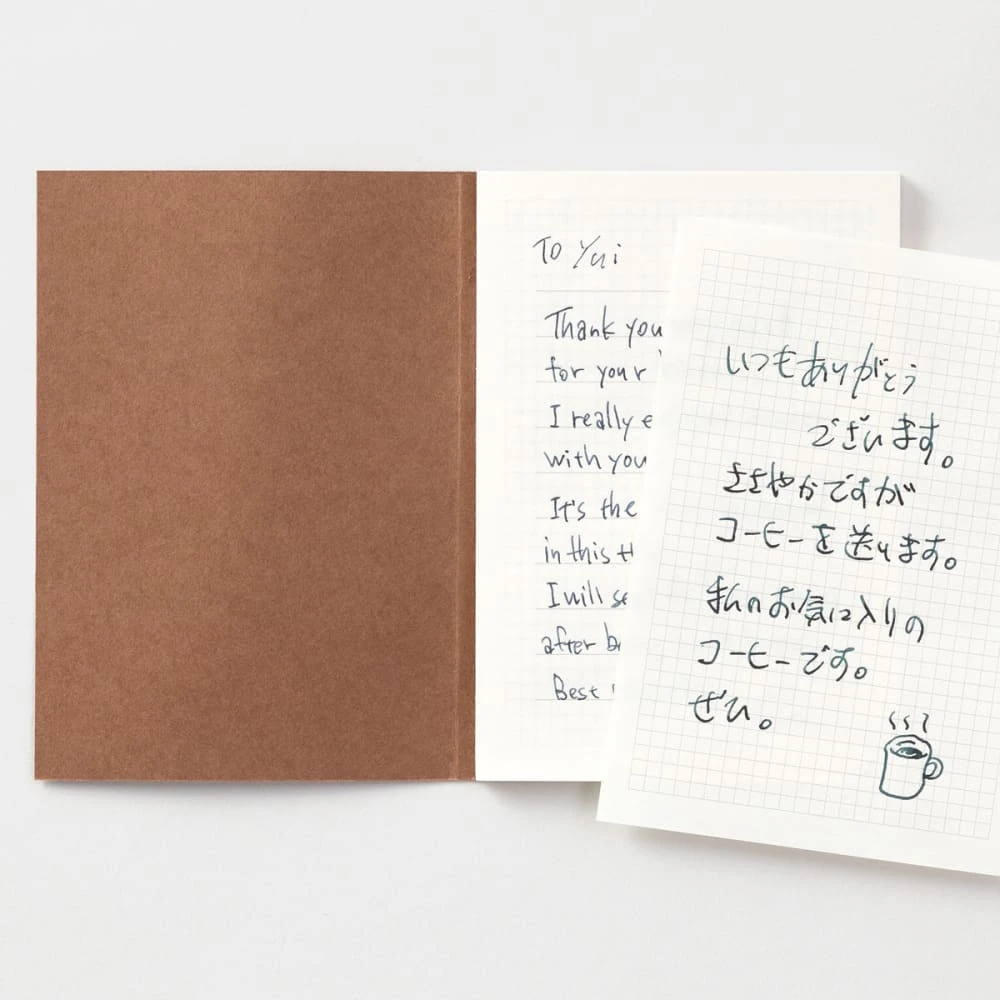 To Yui
Thank you
for your
I really
with you
It's the
in this
I will
after
Best
いつもありがとう
ございます。
ささやかですが
コーヒーを送ります。
まんのお気に入りの
コーヒーです。
ぜひ。